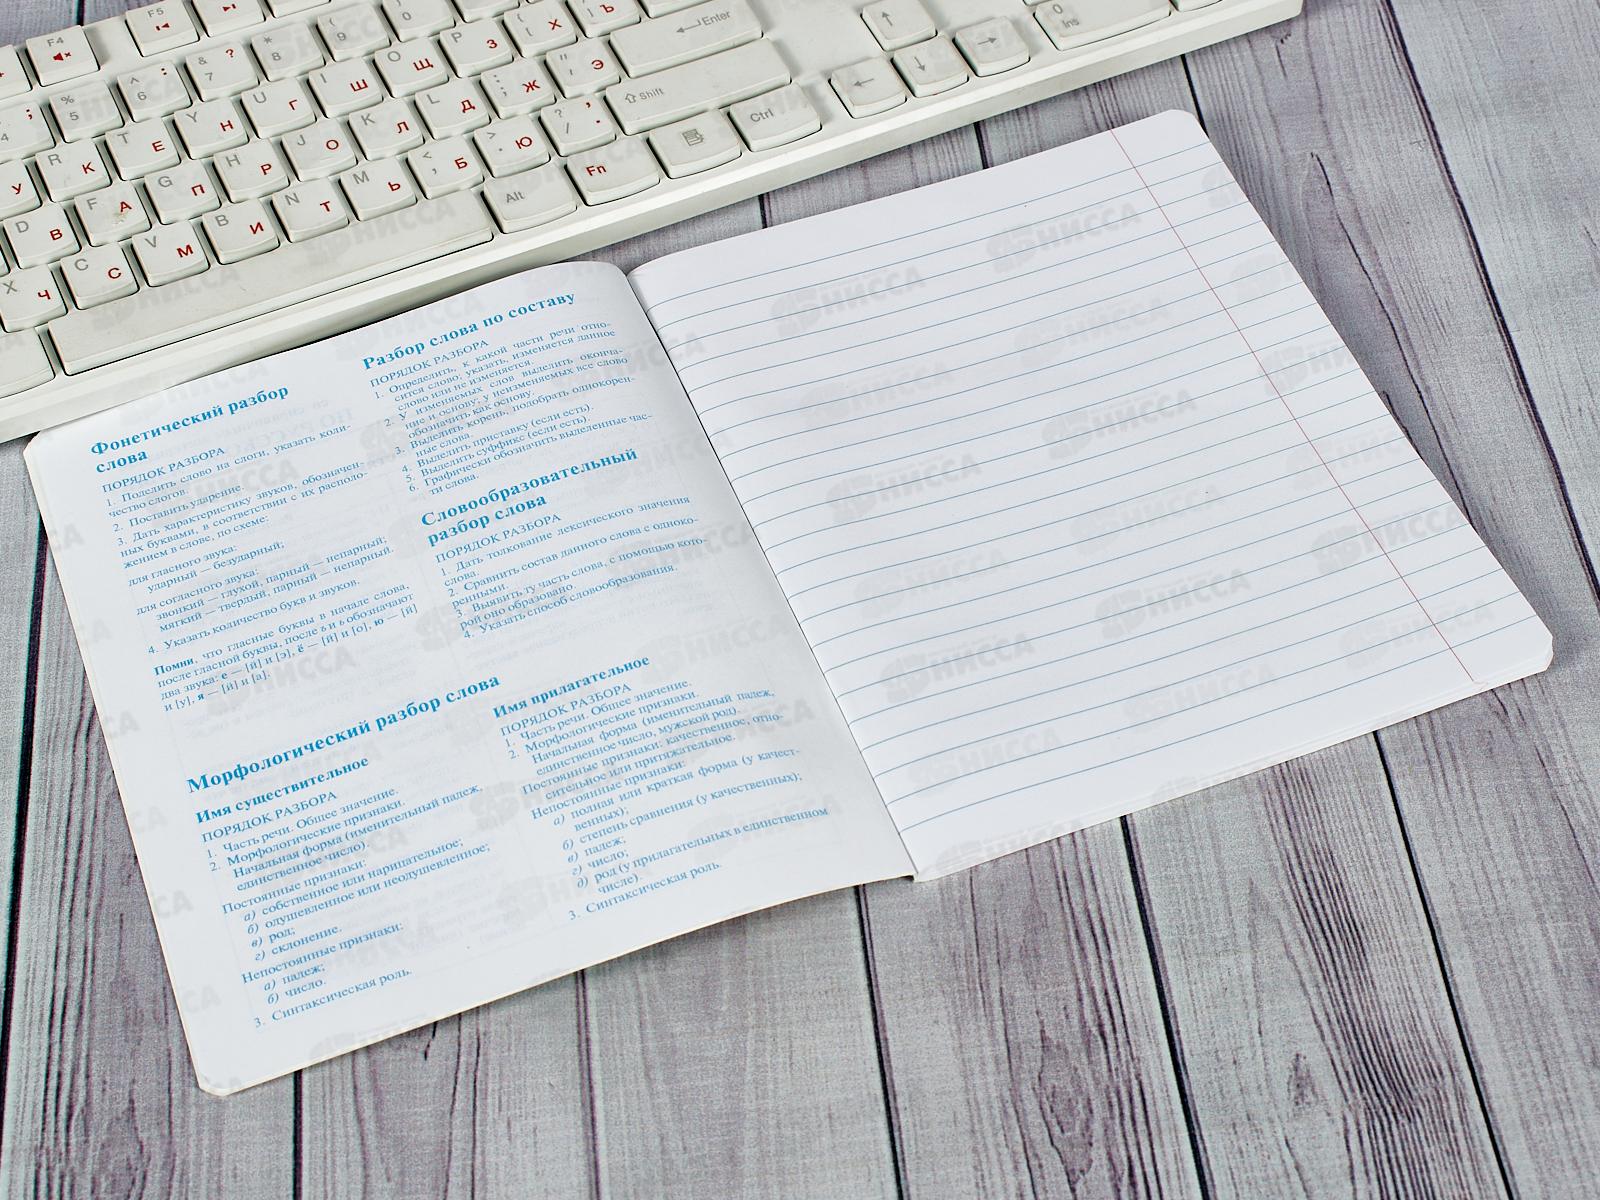 Фонетический разбор
слова
ПОРЯДОК РАЗБОРА
1. Поделить слово на слоги, указать коли-
чество слогов.
2. Поставить ударение.
3. Дать характеристику звуков, обозначен-
ных буквами, в соответствии с их располо-
жением в слове, по схеме:
для гласного звука:
ударный — безударный;
для согласного звука:
звонкий — глухой, парный — непарный;
мягкий — твердый, парный — непарный.
4. Указать количество букв и звуков.
Помни, что гласные буквы в начале слова,
после гласной буквы, после ъ и ь обозначают
два звука: е — [й] и [э], ё — [й] и [о], ю — [й]
и [у], я — [й] и [а].
Разбор слова по составу
ПОРЯДОК РАЗБОРА
1. Определить, к какой части речи отно-
сится слово; указать, изменяется данное
слово или не изменяется.
2. У изменяемых слов выделить оконча-
ние и основу; у неизменяемых все слово
обозначить как основу.
3. Выделить корень, подобрать однокорен-
ные слова.
4. Выделить приставку (если есть).
5. Выделить суффикс (если есть).
6. Графически обозначить выделенные час-
ти слова.
Словообразовательный
разбор слова
ПОРЯДОК РАЗБОРА
1. Дать толкование лексического значения
слова.
2. Сравнить состав данного слова с одноко-
ренными:
3. Выявить ту часть слова, с помощью кото-
рой оно образовано.
4. Указать способ словообразования.
Морфологический разбор слова
Имя существительное
ПОРЯДОК РАЗБОРА
1. Часть речи. Общее значение.
2. Морфологические признаки.
Начальная форма (именительный падеж,
единственное число)
Постоянные признаки:
а) собственное или нарицательное;
б) одушевленное или неодушевленное;
в) род;
г) склонение.
Непостоянные признаки:
а) падеж;
б) число.
3. Синтаксическая роль.
Имя прилагательное
ПОРЯДОК РАЗБОРА
1. Часть речи. Общее значение.
2. Морфологические признаки.
Начальная форма (именительный падеж,
единственное число, мужской род).
Постоянные признаки: качественное, отно-
сительное или притяжательное.
Непостоянные признаки:
а) полная или краткая форма (у качест-
венных);
б) степень сравнения (у качественных);
в) падеж;
г) число;
д) род (у прилагательных в единственном
числе).
3. Синтаксическая роль.
F4
F5
Enter
Shift
Ctrl
Alt
Fn
0
Ins
НИССА